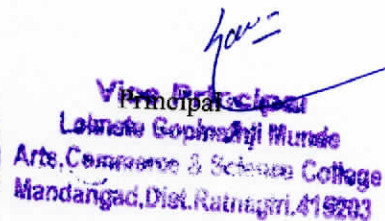 Vice Principal
Principal
Loknete Gopinathji Munde
Arts, Commerce & Science College
Mandangad, Dist. Ratnagiri. 415203